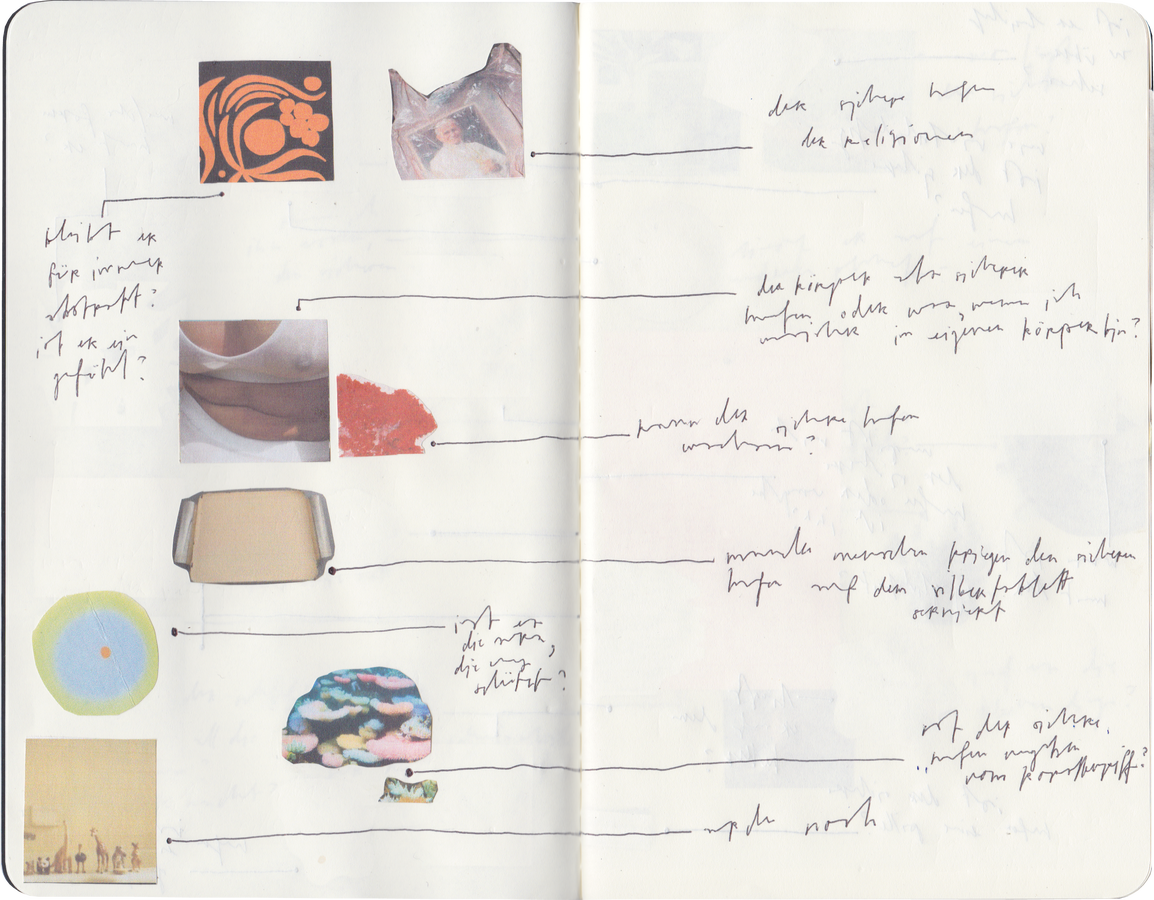 der sichere hafen
der religionen
bleibt er
für immer
abstrakt?
ist er ein
gefühl?
der körper als sicherer
hafen oder was, wenn ich
unsicher im eigenen körper bin?
kann der sichere hafen
wachsen?
manche menschen kriegen den sicheren
hafen auf dem silbertablett
serviert
ist es
die natur,
die uns
schützt?
ist der sichere
hafen
vom
noch